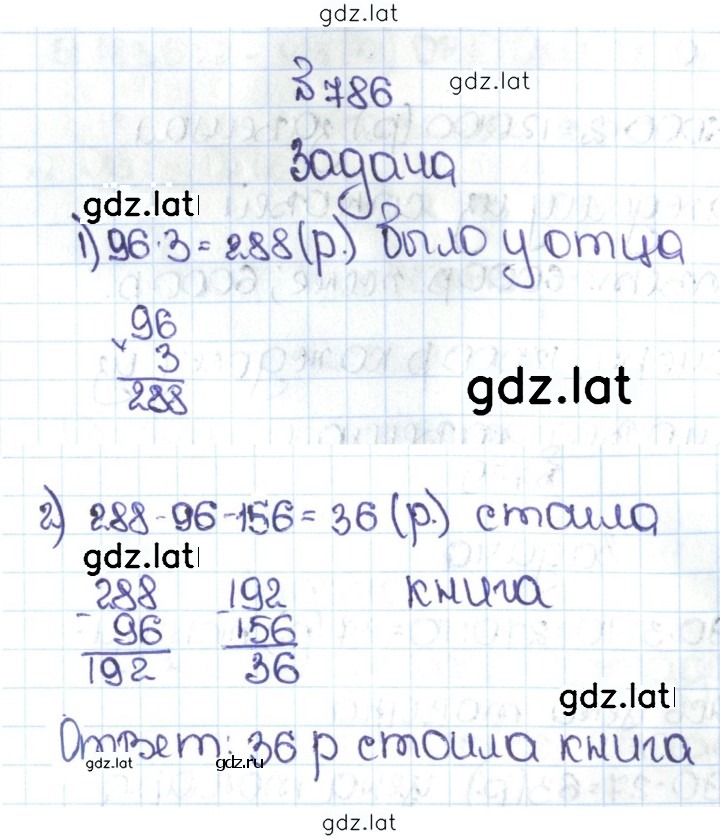 gdz.lat
№786
gdz.lat
Задача
gdz.lat
1) 96·3=288(р.) было у отца
96
× 3
288
gdz.lat
2) 288-96-156=36(р.) стоила
gdz.lat
книга
288 192
- 96 - 156
192 36
gdz.lat
Ответ: 36 р стоила книга
gdz.lat gdz.ru
gdz.lat